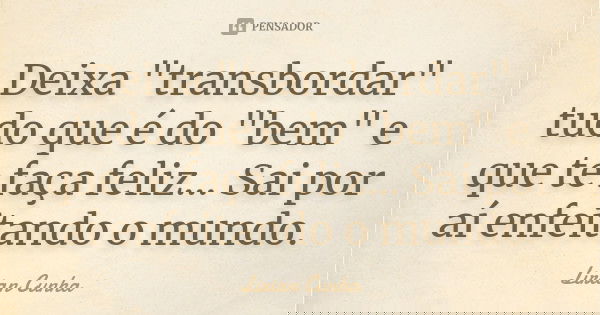 PENSADOR
Deixa "transbordar"
tudo que é do "bem" e
que te faça feliz... Sai por
aí enfeitando o mundo.
Lirian Cunha